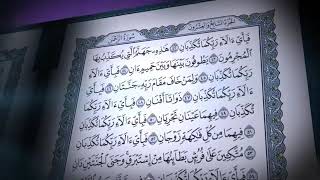 الجزء السابع والعشرون سورة الرحمن
فَبِأَيِّ ءَالَآءِ رَبِّكُمَا تُكَذِّبَانِ ٤٢ هَٰذِهِۦ جَهَنَّمُ ٱلَّتِى يُكَذِّبُ بِهَا
ٱلْمُجْرِمُونَ ٤٣ يَطُوفُونَ بَيْنَهَا وَبَيْنَ حَمِيمٍ ءَانٍ ٤٤ فَبِأَيِّ ءَالَآءِ
رَبِّكُمَا تُكَذِّبَانِ ٤٥ وَلِمَنْ خَافَ مَقَامَ رَبِّهِۦ جَنَّتَانِ ٤٦ فَبِأَيِّ ءَالَآءِ
رَبِّكُمَا تُكَذِّبَانِ ٤٧ ذَوَاتَآ أَفْنَانٍ ٤٨ فَبِأَيِّ ءَالَآءِ رَبِّكُمَا
تُكَذِّبَانِ ٤٩ فِيهِمَا عَيْنَانِ تَجْرِيَانِ ٥٠ فَبِأَيِّ ءَالَآءِ رَبِّكُمَا
تُكَذِّبَانِ ٥١ فِيهِمَا مِن كُلِّ فَٰكِهَةٍ زَوْجَانِ ٥٢ فَبِأَيِّ ءَالَآءِ رَبِّكُمَا تُكَذِّبَانِ ٥٣
مُتَّكِـِٔينَ عَلَىٰ فُرُشٍۭ بَطَآئِنُهَا مِنْ إِسْتَبْرَقٍ وَجَنَى ٱلْجَنَّتَيْنِ دَانٍ